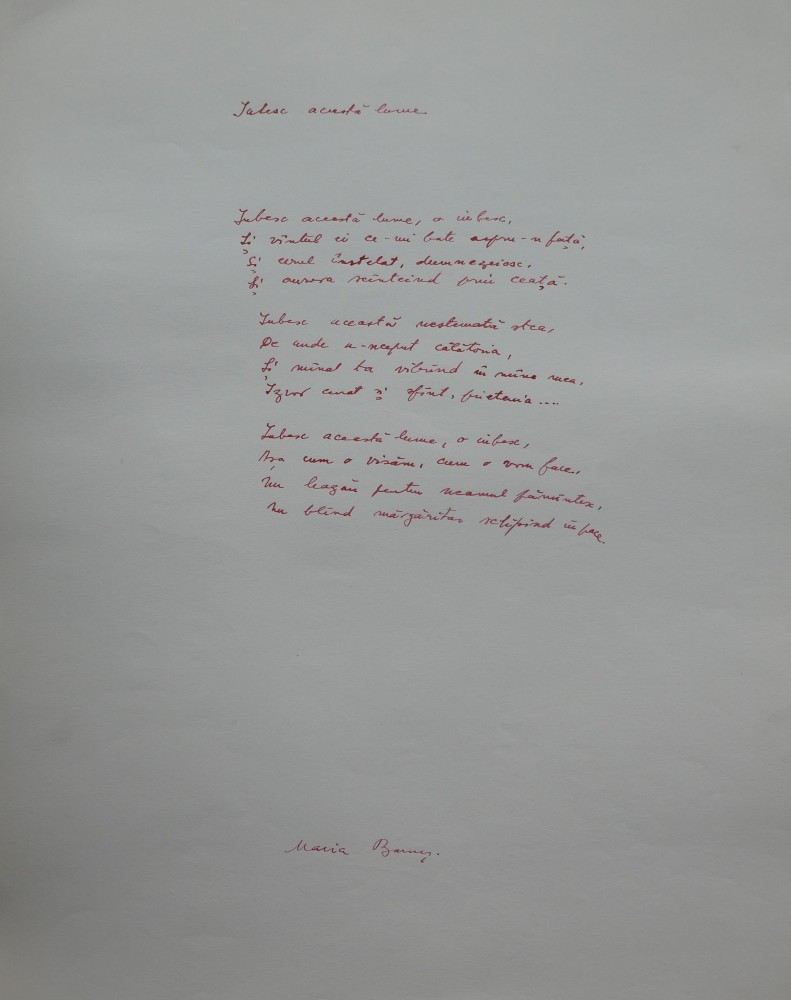 Iubesc această lume
Iubesc această lume, o iubesc,
Și vîntul ei ce-mi bate aspru-n față,
Și cerul înstelat, dumnezeiesc,
Și aurora scînteind prin ceață.
Iubesc această nestemată stea,
De unde a-nceput călătoria,
Și mîna ta vibrînd în mîna mea,
Izvor curat și sfînt, prietenia....
Iubesc această lume, o iubesc,
Așa cum o visăm, cum o vom face,
Un leagăn pentru neamul pămîntesc,
Un blînd mărgăritar sclipind în pace.
Maria Banuș.